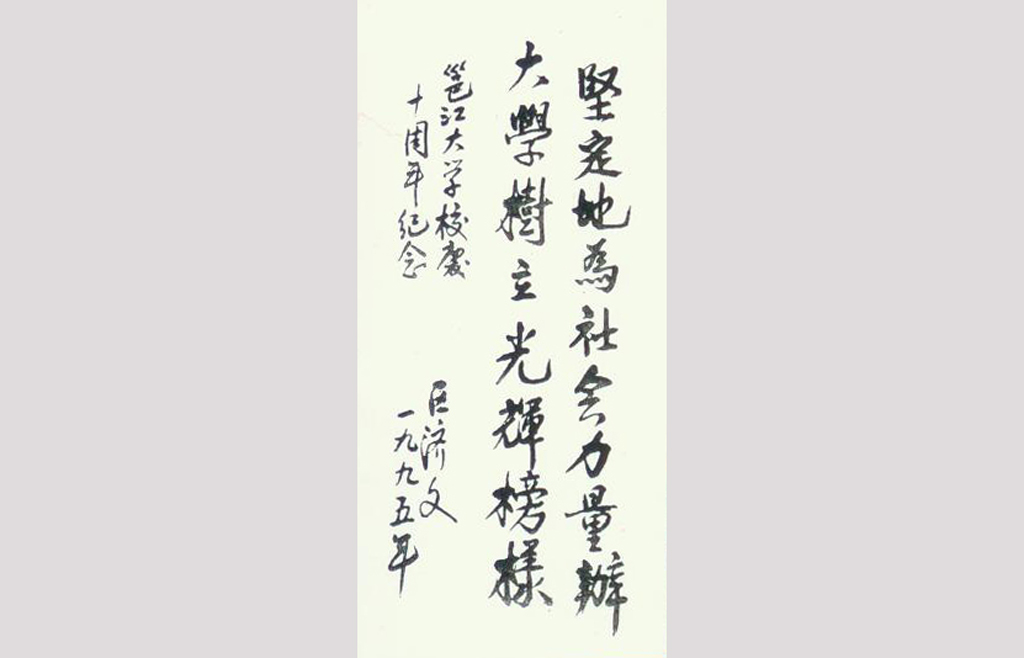 堅定地為社会力量辦
大學樹立光輝榜樣
邕江大学校慶
十周年纪念
区济文
一九九五年